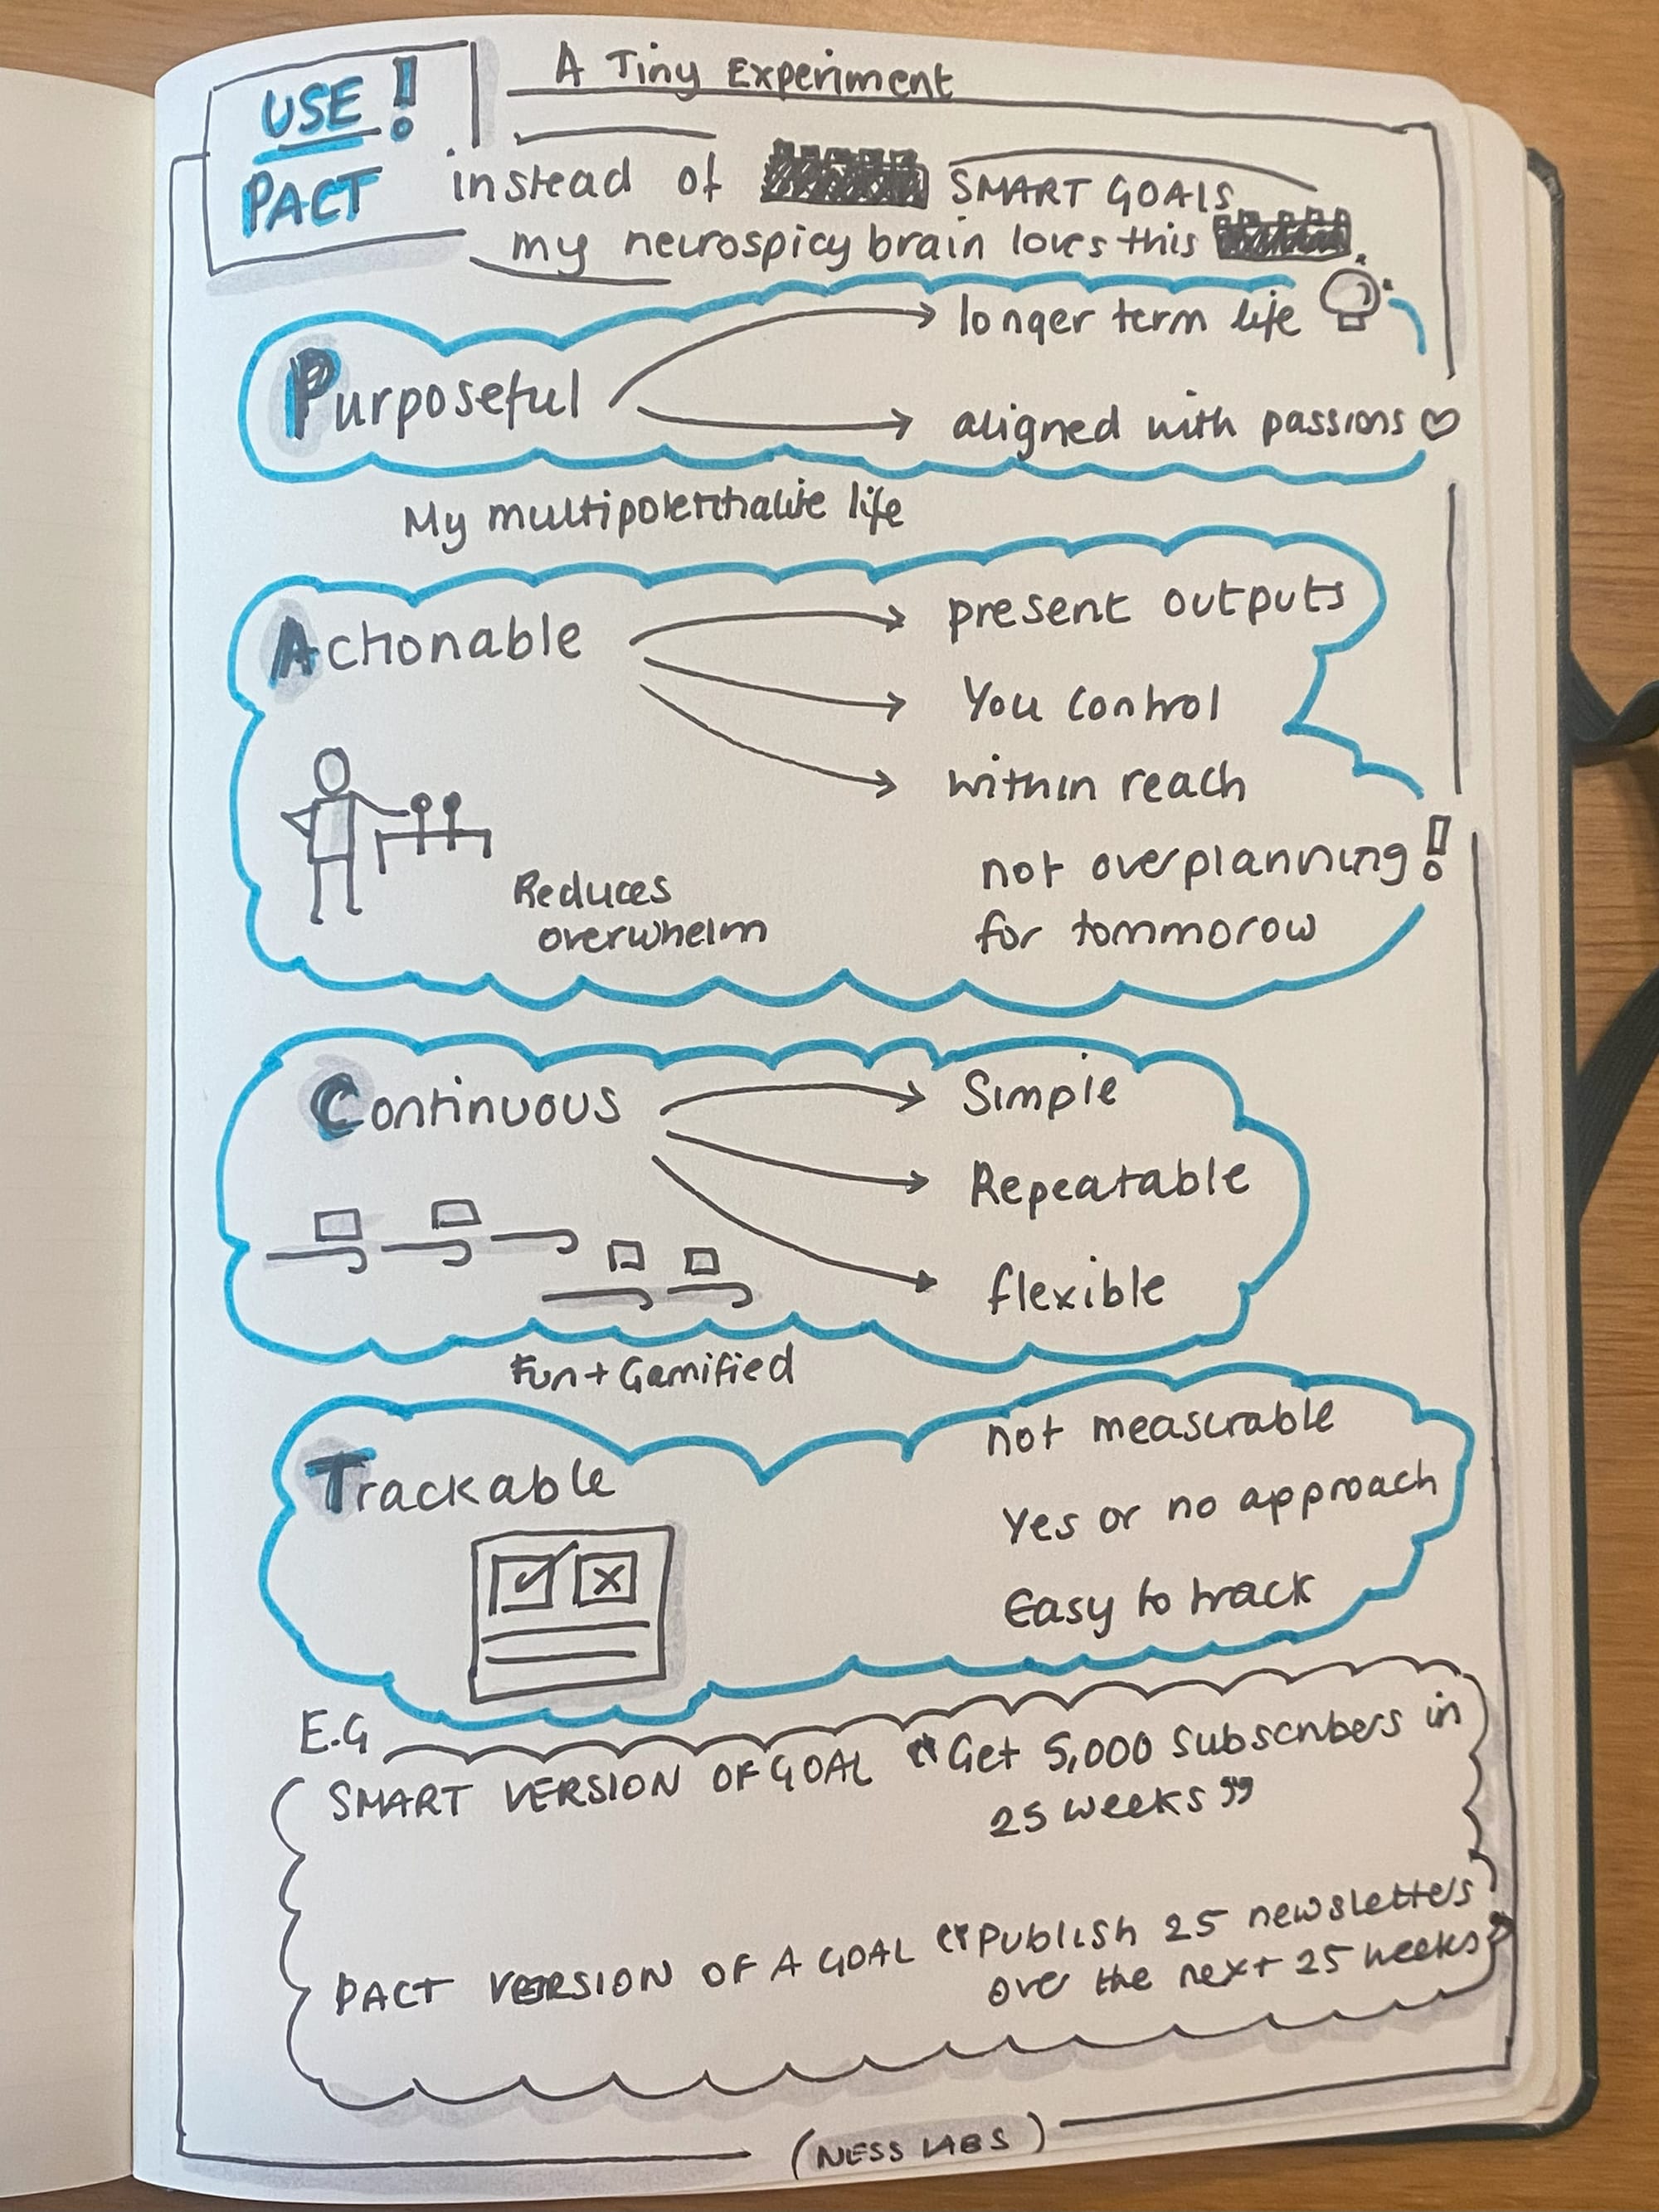 A Tiny Experiment
USE!
PACT instead of SMART GOALS
my neurospicy brain loves this
Purposeful
longer term life
aligned with passions
My multipotentialite life
Actionable
present outputs
You control
within reach
not overplanning!
for tommorow
Reduces
overwhelm
Continuous
Simple
Repeatable
flexible
Fun + Gamified
Trackable
not measurable
Yes or no approach
Easy to track
E.G
SMART VERSION OF GOAL "Get 5,000 subscribers in
25 weeks"
PACT VERSION OF A GOAL "Publish 25 newsletters
over the next 25 weeks"
(NESS LABS)